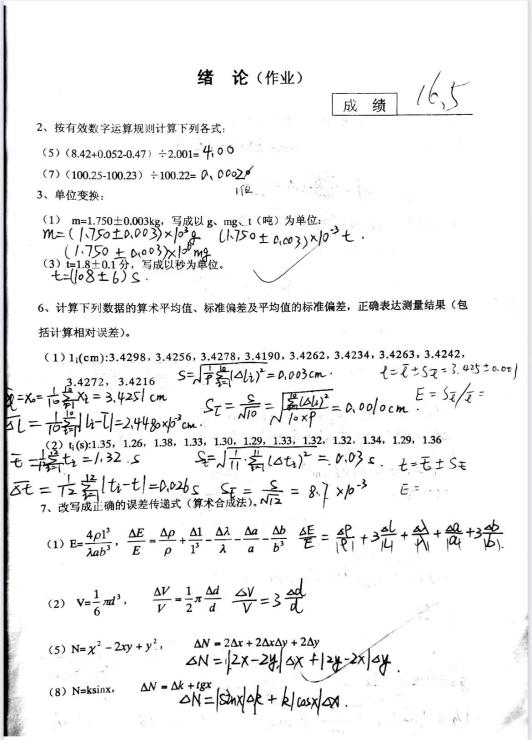 绪 论（作业）
成 绩 16.5
2、按有效数字运算规则计算下列各式:
（5）(8.42+0.052-0.47) ÷2.001= 4.00
（7）(100.25-100.23) ÷100.22= 0.0002
1位
3、单位变换:
（1） m=1.750±0.003kg，写成以 g、mg、t（吨）为单位:
m=(1.750±0.003)×10³g (1.750±0.003)×10⁻³t.
(1.750±0.003)×10⁶mg
（3）t=1.8±0.1 分，写成以秒为单位。
t=(108±6)S.
6、计算下列数据的算术平均值、标准偏差及平均值的标准偏差，正确表达测量结果（包
括计算相对误差）。
（1）lᵢ(cm):3.4298，3.4256，3.4278，3.4190，3.4262，3.4234，3.4263，3.4242，
3.4272，3.4216 S=√(1/9 Σ(Δlᵢ)²)=0.003cm. l=l̄±Sx̄=3.425±0.001
=x₀=1/10 Σxᵢ=3.4251cm Sl̄=S/√10=√(Σ(Δlᵢ)²/10×9)=0.0010cm E=Sx̄/x̄=
Δl=1/10 Σ|lᵢ-l̄|=2.4480×10⁻³cm.
（2）tᵢ(s):1.35，1.26，1.38，1.33，1.30，1.29，1.33，1.32，1.34，1.29，1.36
t̄=1/12 Σtᵢ=1.32.s S=√(1/11 Σ(Δtᵢ)²)=0.03s. t=t̄±St̄
Δt=1/12 Σ|tᵢ-t|=0.026s St̄=S/√12=8.7×10⁻³ E=...
7、改写成正确的误差传递式（算术合成法）。
（1）E=4ρl³/λab³，ΔE/E=Δρ/ρ+Δl/l³-Δλ/λ-Δa/a-Δb/b³ ΔE/E=Δρ/|ρ|+3Δl/|l|+Δλ/|λ|+Δa/|a|+3Δb/|b|.
（2） V=1/6 πd³， ΔV/V=1/2 π Δd/d ΔV/V=3Δd/d
（5）N=x²-2xy+y²， ΔN=2Δx+2ΔxΔy+2Δy
ΔN=|2x-2y|Δx+|2y-2x|Δy.
（8）N=ksinx， ΔN=Δk+tgx
ΔN=|sinx|Δk+k|cosx|Δx.